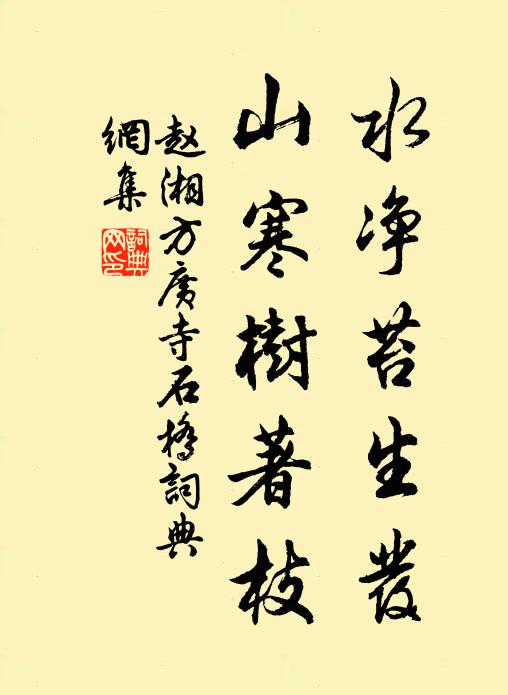 水净苔生发
山寒樹著枝
赵湘方廣寺石橋詞典
網集
詞典
网印